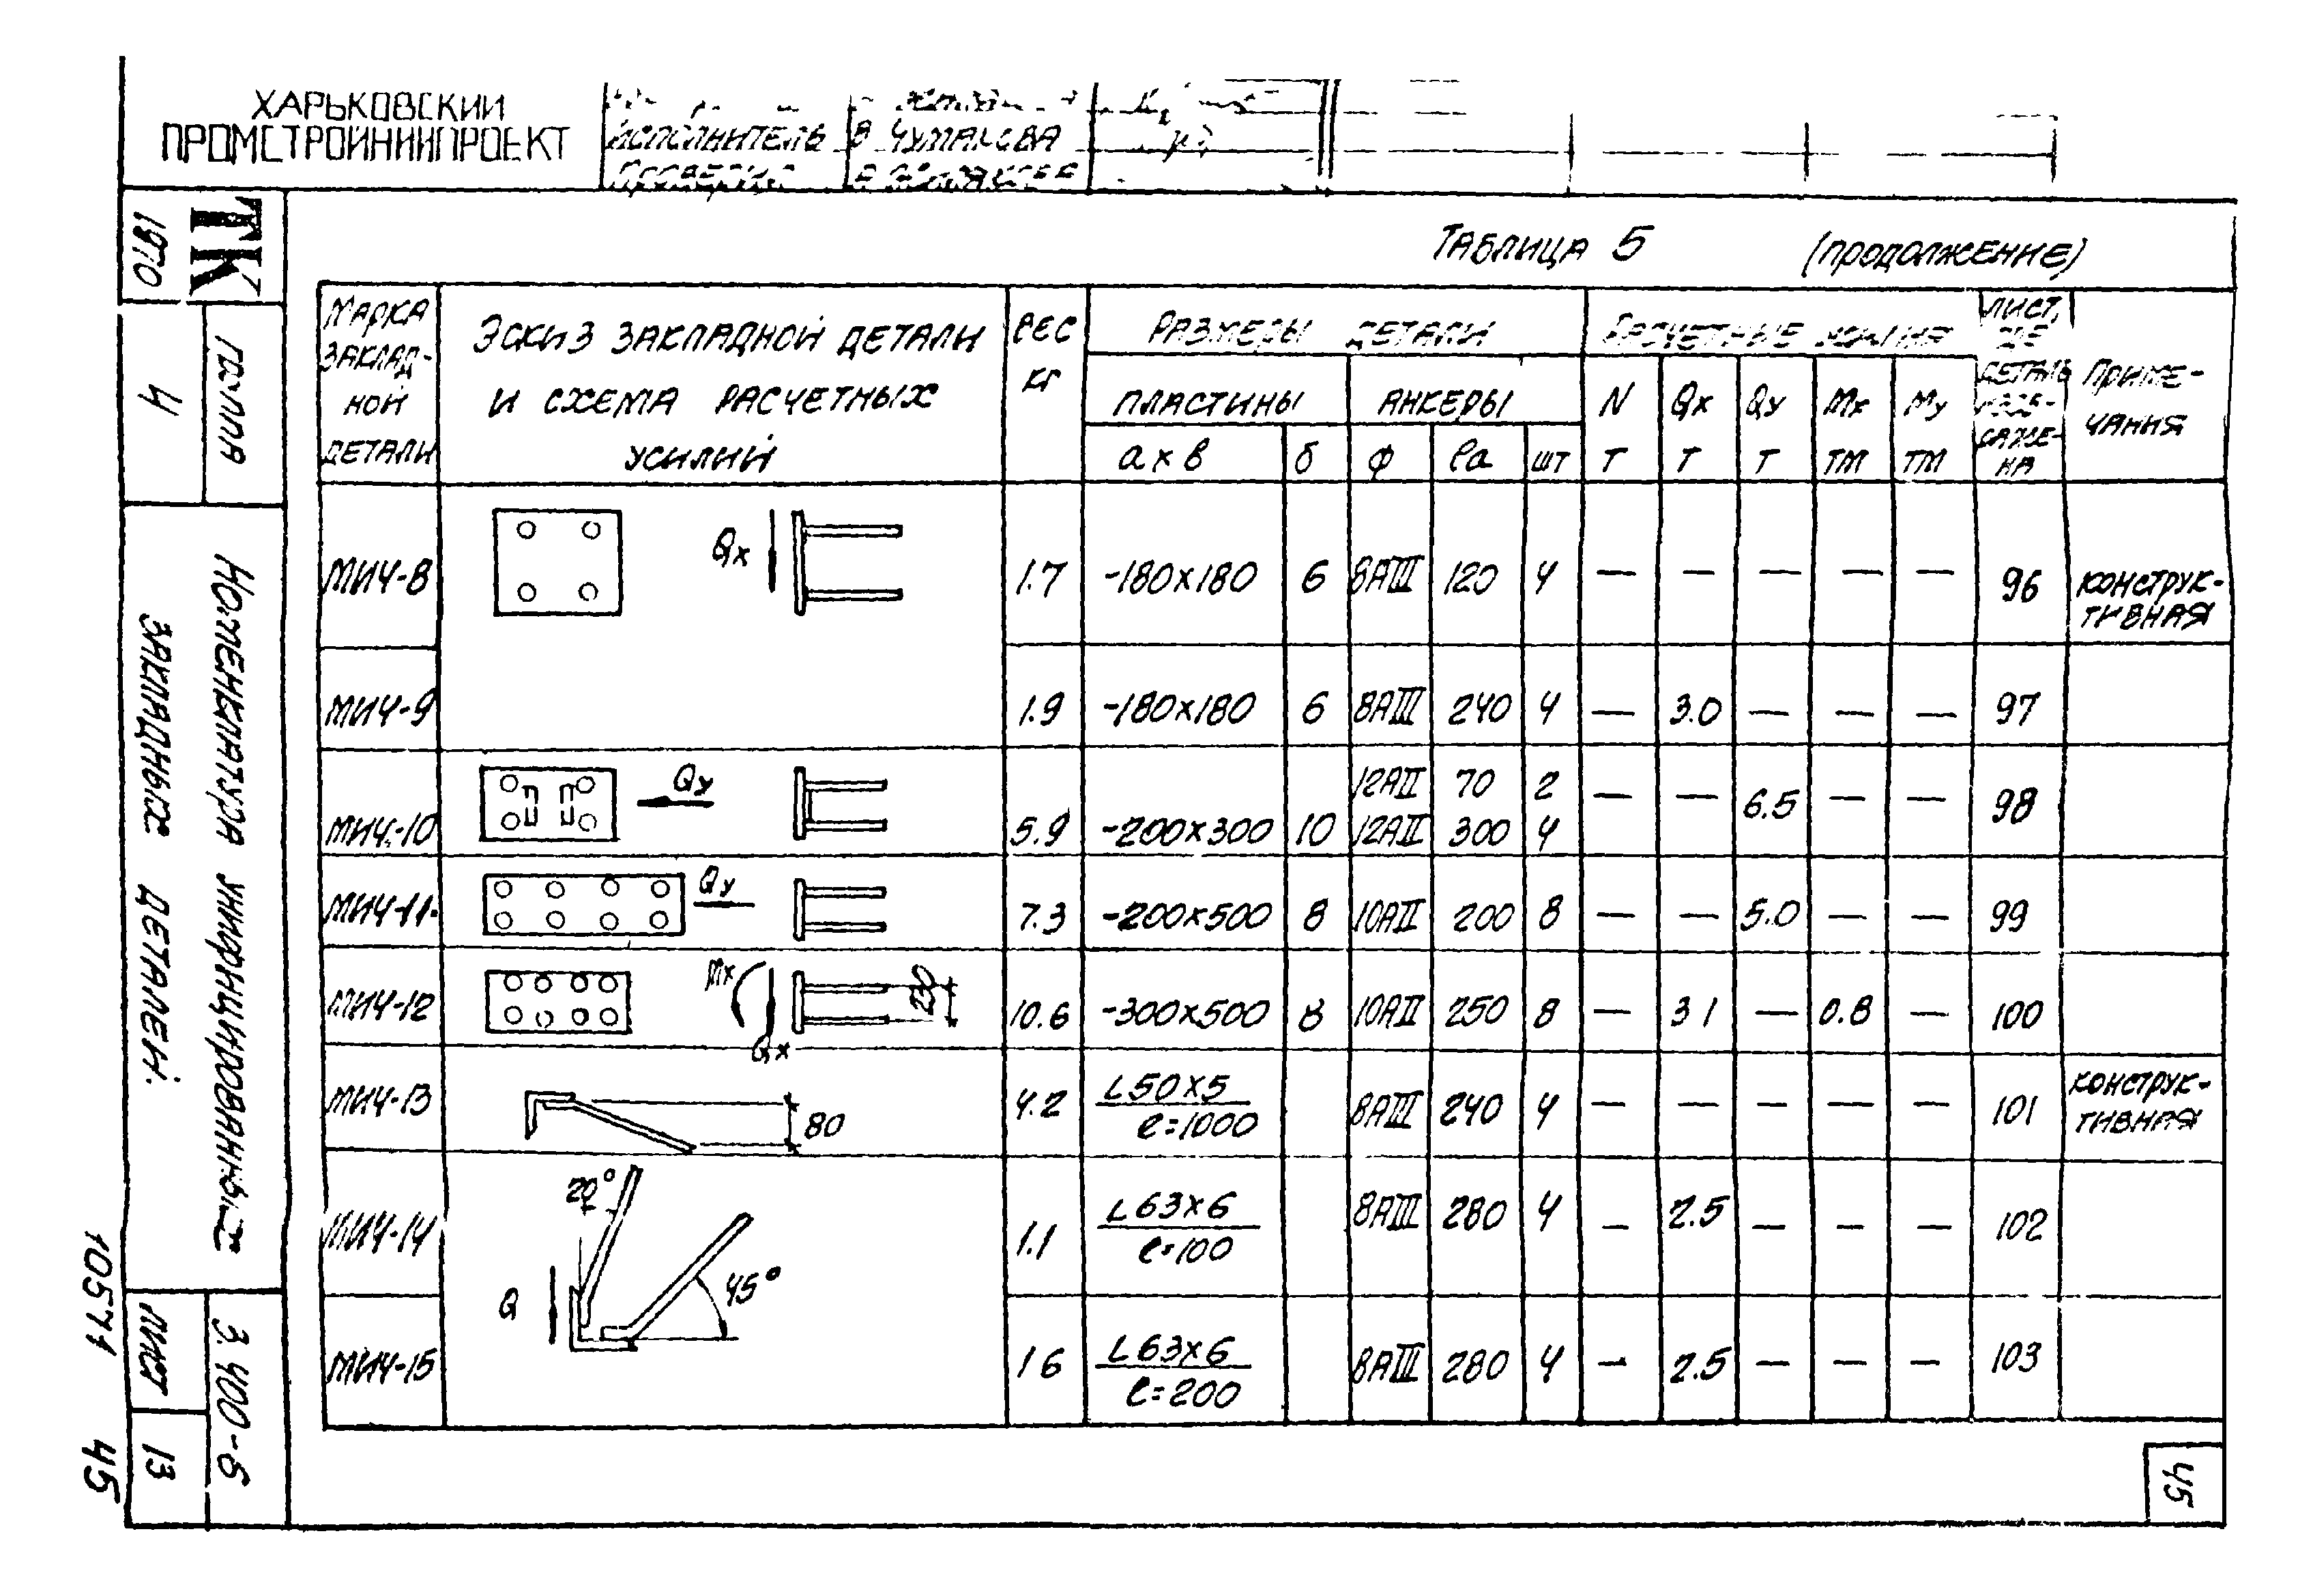 ХАРЬКОВСКИЙ
ПРОМСТРОЙНИИПРОЕКТ
ИСПОЛНИТЕЛЬ В ЧУМАКОВА
ПРОВЕРИЛ
ТК
1970
ГРУППА
4
НОМЕНКЛАТУРА УНИФИЦИРОВАННЫХ
ЗАКЛАДНЫХ ДЕТАЛЕЙ.
3.400-6
ЛИСТ
13
10571 45
ТАБЛИЦА 5 (ПРОДОЛЖЕНИЕ)
МАРКА ЗАКЛАД- НОЙ ДЕТАЛИ
ЭСКИЗ ЗАКЛАДНОЙ ДЕТАЛИ
И СХЕМА РАСЧЕТНЫХ
УСИЛИЙ
ВЕС КГ
РАЗМЕРЫ ДЕТАЛИ
ПЛАСТИНЫ АНКЕРЫ
a x в б ф ℓa шт
РАСЧЕТНЫЕ УСИЛИЯ
N Qx Qy Mx My
Т Т Т ТМ ТМ
ЛИСТ, ГДЕ ДЕТАЛЬ ИЗОБ- РАЖЕ- НА
ПРИМЕ- ЧАНИЯ
МИ4-8 Qx 1.7 -180x180 6 8АIII 120 4 — — — — — 96 КОНСТРУК-
ТИВНАЯ
МИ4-9 1.9 -180x180 6 8АIII 240 4 — 3.0 — — — 97
Qy 12АII 70 2
МИ4-10 5.9 -200x300 10 12АII 300 4 — — 6.5 — — 98
МИ4-11 Qy 7.3 -200x500 8 10АII 200 8 — — 5.0 — — 99
МИ4-12 Mx Qx 230 10.6 -300x500 8 10АII 250 8 — 3 1 — 0.8 — 100
МИ4-13 80 4.2 L50x5 ℓ=1000 8АIII 240 4 — — — — — 101 КОНСТРУК-
ТИВНАЯ
МИ4-14 20° 1.1 L63x6 ℓ=100 8АIII 280 4 — 2.5 — — — 102
Q 45°
МИ4-15 1 6 L63x6 ℓ=200 8АIII 280 4 — 2.5 — — — 103
45